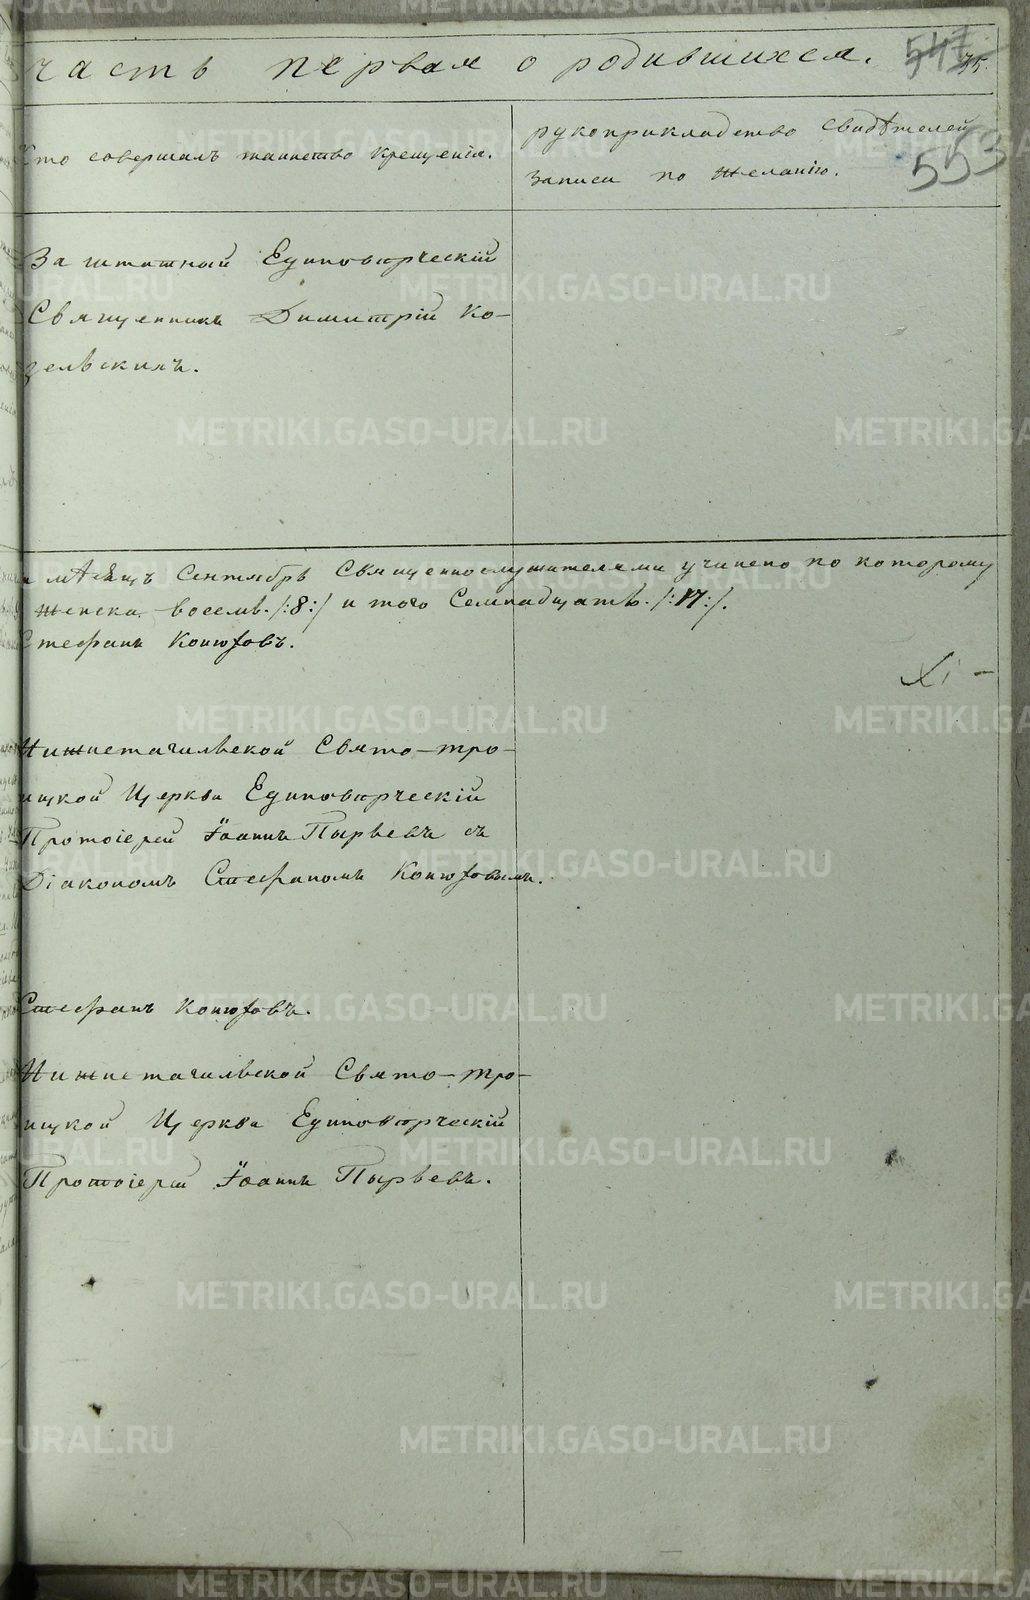 часть первая о родившихся. 541 75.
Кто совершалъ таинство крещенія.
рукоприкладство свидѣтелей
записи по желанію.
553
Заштатный Единовѣрческій
Священникъ Димитрій Ко-
зельскихъ.
мѣсяцъ Сентябрь Священнослужителями учинено по которому
женска восемь /:8:/ итого Семнадцать. /:17:/.
Стефанъ Конюховъ.
Нижнетагильской Свято-тро-
ицкой Церкви Единовѣрческій
Протоіерей Іоаннъ Пырьевъ съ
Діакономъ Стефаномъ Конюховымъ.
Стефанъ Конюховъ.
Нижнетагильской Свято-тро-
ицкой Церкви Единовѣрческій
Протоіерей Іоаннъ Пырьевъ.
METRIKI.GASO-URAL.RU